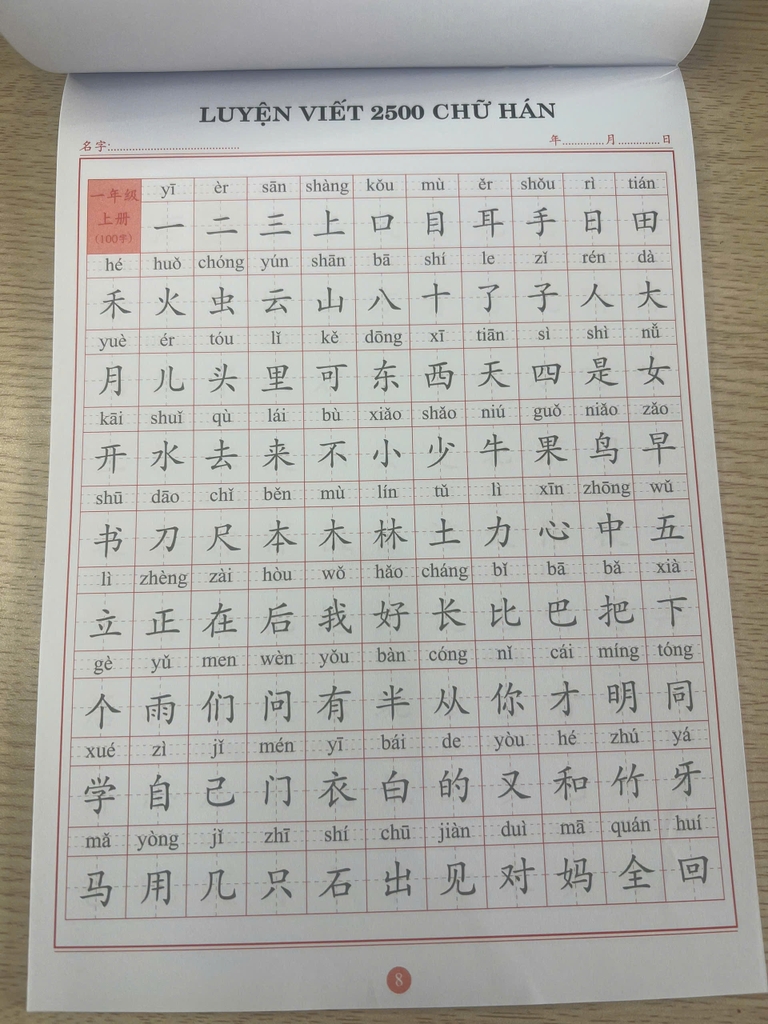 LUYỆN VIẾT 2500 CHỮ HÁN
名字:........................................ 年.............月.............日
一年級 上册 (100字)
yī èr sān shàng kǒu mù ěr shǒu rì tián
一 二 三 上 口 目 耳 手 日 田
hé huǒ chóng yún shān bā shí le zǐ rén dà
禾 火 虫 云 山 八 十 了 子 人 大
yuè ér tóu lǐ kě dōng xī tiān sì shì nǚ
月 儿 头 里 可 东 西 天 四 是 女
kāi shuǐ qù lái bù xiǎo shǎo niú guǒ niǎo zǎo
开 水 去 来 不 小 少 牛 果 鸟 早
shū dāo chǐ běn mù lín tǔ lì xīn zhōng wǔ
书 刀 尺 本 木 林 土 力 心 中 五
lì zhèng zài hòu wǒ hǎo cháng bǐ bā bǎ xià
立 正 在 后 我 好 长 比 巴 把 下
gè yǔ men wèn yǒu bàn cóng nǐ cái míng tóng
个 雨 们 问 有 半 从 你 才 明 同
xué zì jǐ mén yī bái de yòu hé zhú yá
学 自 己 门 衣 白 的 又 和 竹 牙
mǎ yòng jǐ zhī shí chū jiàn duì mā quán huí
马 用 几 只 石 出 见 对 妈 全 回
8